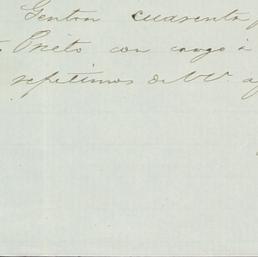 Genton cuarenta
Prieto con cargo á
repetimos de VV. af